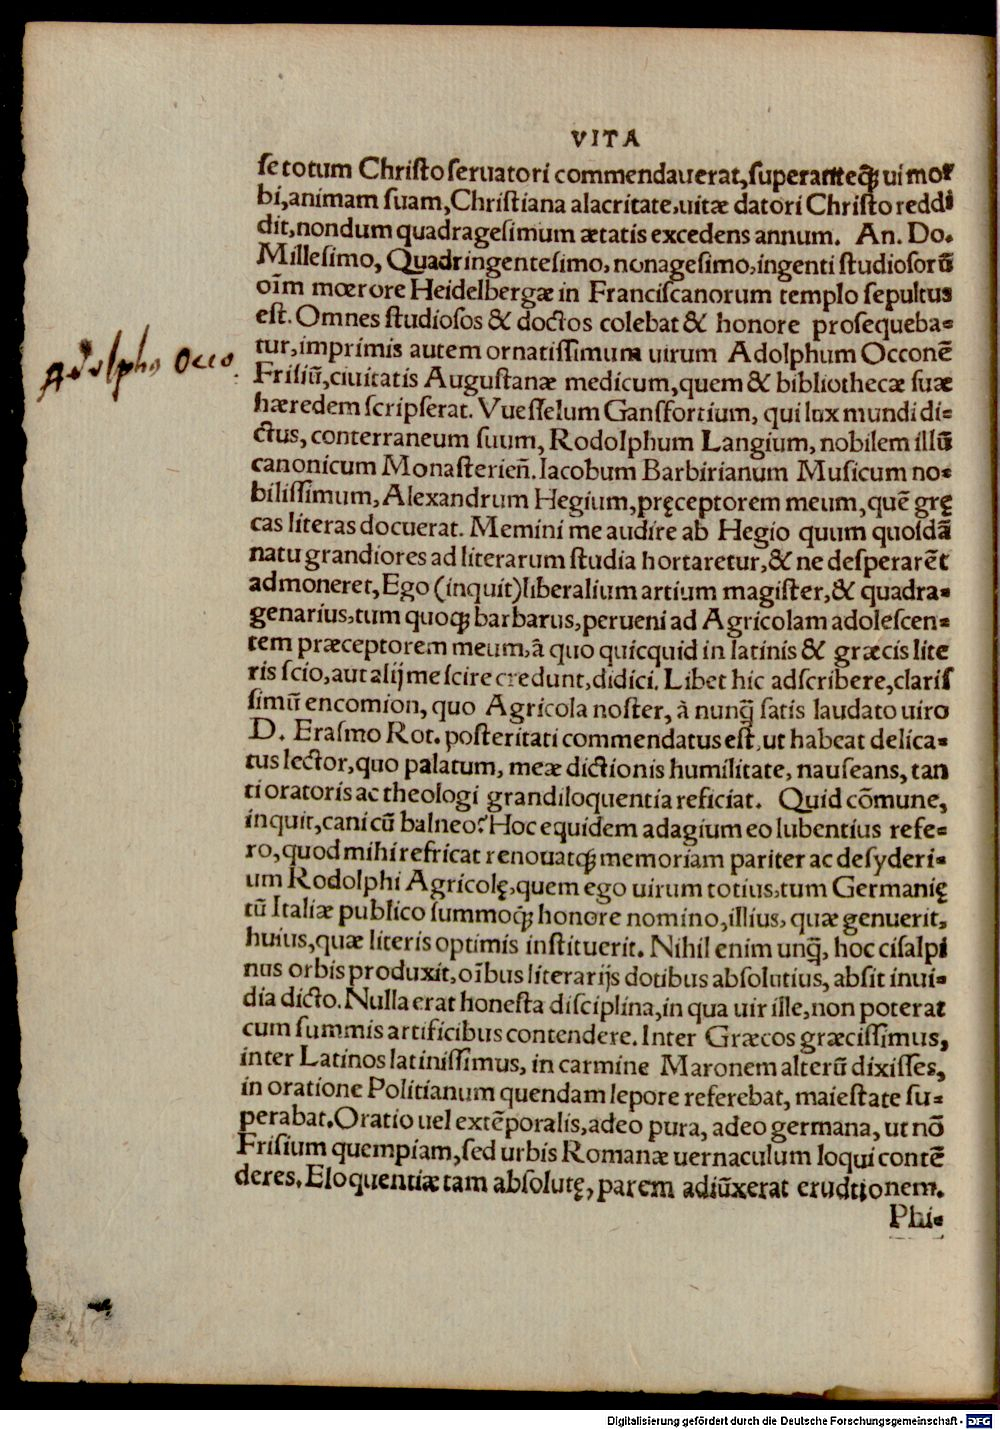 VITA
se totum Christo seruatori commendauerat, superanteq́ꝫ ui mor
bi, animam suam, Christiana alacritate, uitæ datori Christo reddi
dit, nondum quadragesimum ætatis excedens annum. An. Do.
Millesimo, Quadringentesimo, nonagesimo, ingenti studiosorũ
oīm mœrore Heidelbergæ in Franciscanorum templo sepultus
est. Omnes studiosos & doctos colebat & honore prosequeba-
tur, imprimis autem ornatissimum uirum Adolphum Occonẽ
Adolphus Occo
Frisiũ, ciuitatis Augustanæ medicum, quem & bibliothecæ suæ
hæredem scripserat. Vuesselum Gansfortium, qui lux mundi di-
ctus, conterraneum suum, Rodolphum Langium, nobilem illũ
canonicum Monasterien̄. Iacobum Barbirianum Musicum no-
bilissimum, Alexandrum Hegium, pręceptorem meum, quẽ grę
cas literas docuerat. Memini me audire ab Hegio quum quosdã
natu grandiores ad literarum studia hortaretur, & ne desperarẽt
admoneret, Ego (inquit) liberalium artium magister, & quadra-
genarius, tum quoqꝫ barbarus, perueni ad Agricolam adolescen-
tem præceptorem meum, â quo quicquid in latinis & græcis lite
ris scio, aut alij me scire credunt, didici. Libet hic adscribere, claris
simũ encomion, quo Agricola noster, à nunq̃ satis laudato uiro
D. Erasmo Rot. posteritati commendatus est, ut habeat delica-
tus lector, quo palatum, meæ dictionis humilitate, nauseans, tan
ti oratoris ac theologi grandiloquentia reficiat. Quid cõmune,
inquit, cani cũ balneo? Hoc equidem adagium eo lubentius refe-
ro, quod mihi refricat renouatqꝫ memoriam pariter ac desyderi-
um Rodolphi Agricolę, quem ego uirum totius, tum Germanię
tũ Italiæ publico summoq́ꝫ honore nomino, illius, quæ genuerit,
huius, quæ literis optimis instituerit. Nihil enim unq̃, hoc cisalpi
nus orbis produxit, oībus literarijs dotibus absolutius, absit inui-
dia dicto. Nulla erat honesta disciplina, in qua uir ille, non poterat
cum summis artificibus contendere. Inter Græcos græcissimus,
inter Latinos latinissimus, in carmine Maronem alterũ dixisses,
in oratione Politianum quendam lepore referebat, maiestate su-
perabat. Oratio uel extẽporalis, adeo pura, adeo germana, ut nõ
Frisium quempiam, sed urbis Romanæ uernaculum loqui contẽ
deres. Eloquentiæ tam absolutę, parem adiũxerat erudtionem.
Phi-
Digitalisierung gefördert durch die Deutsche Forschungsgemeinschaft - DFG